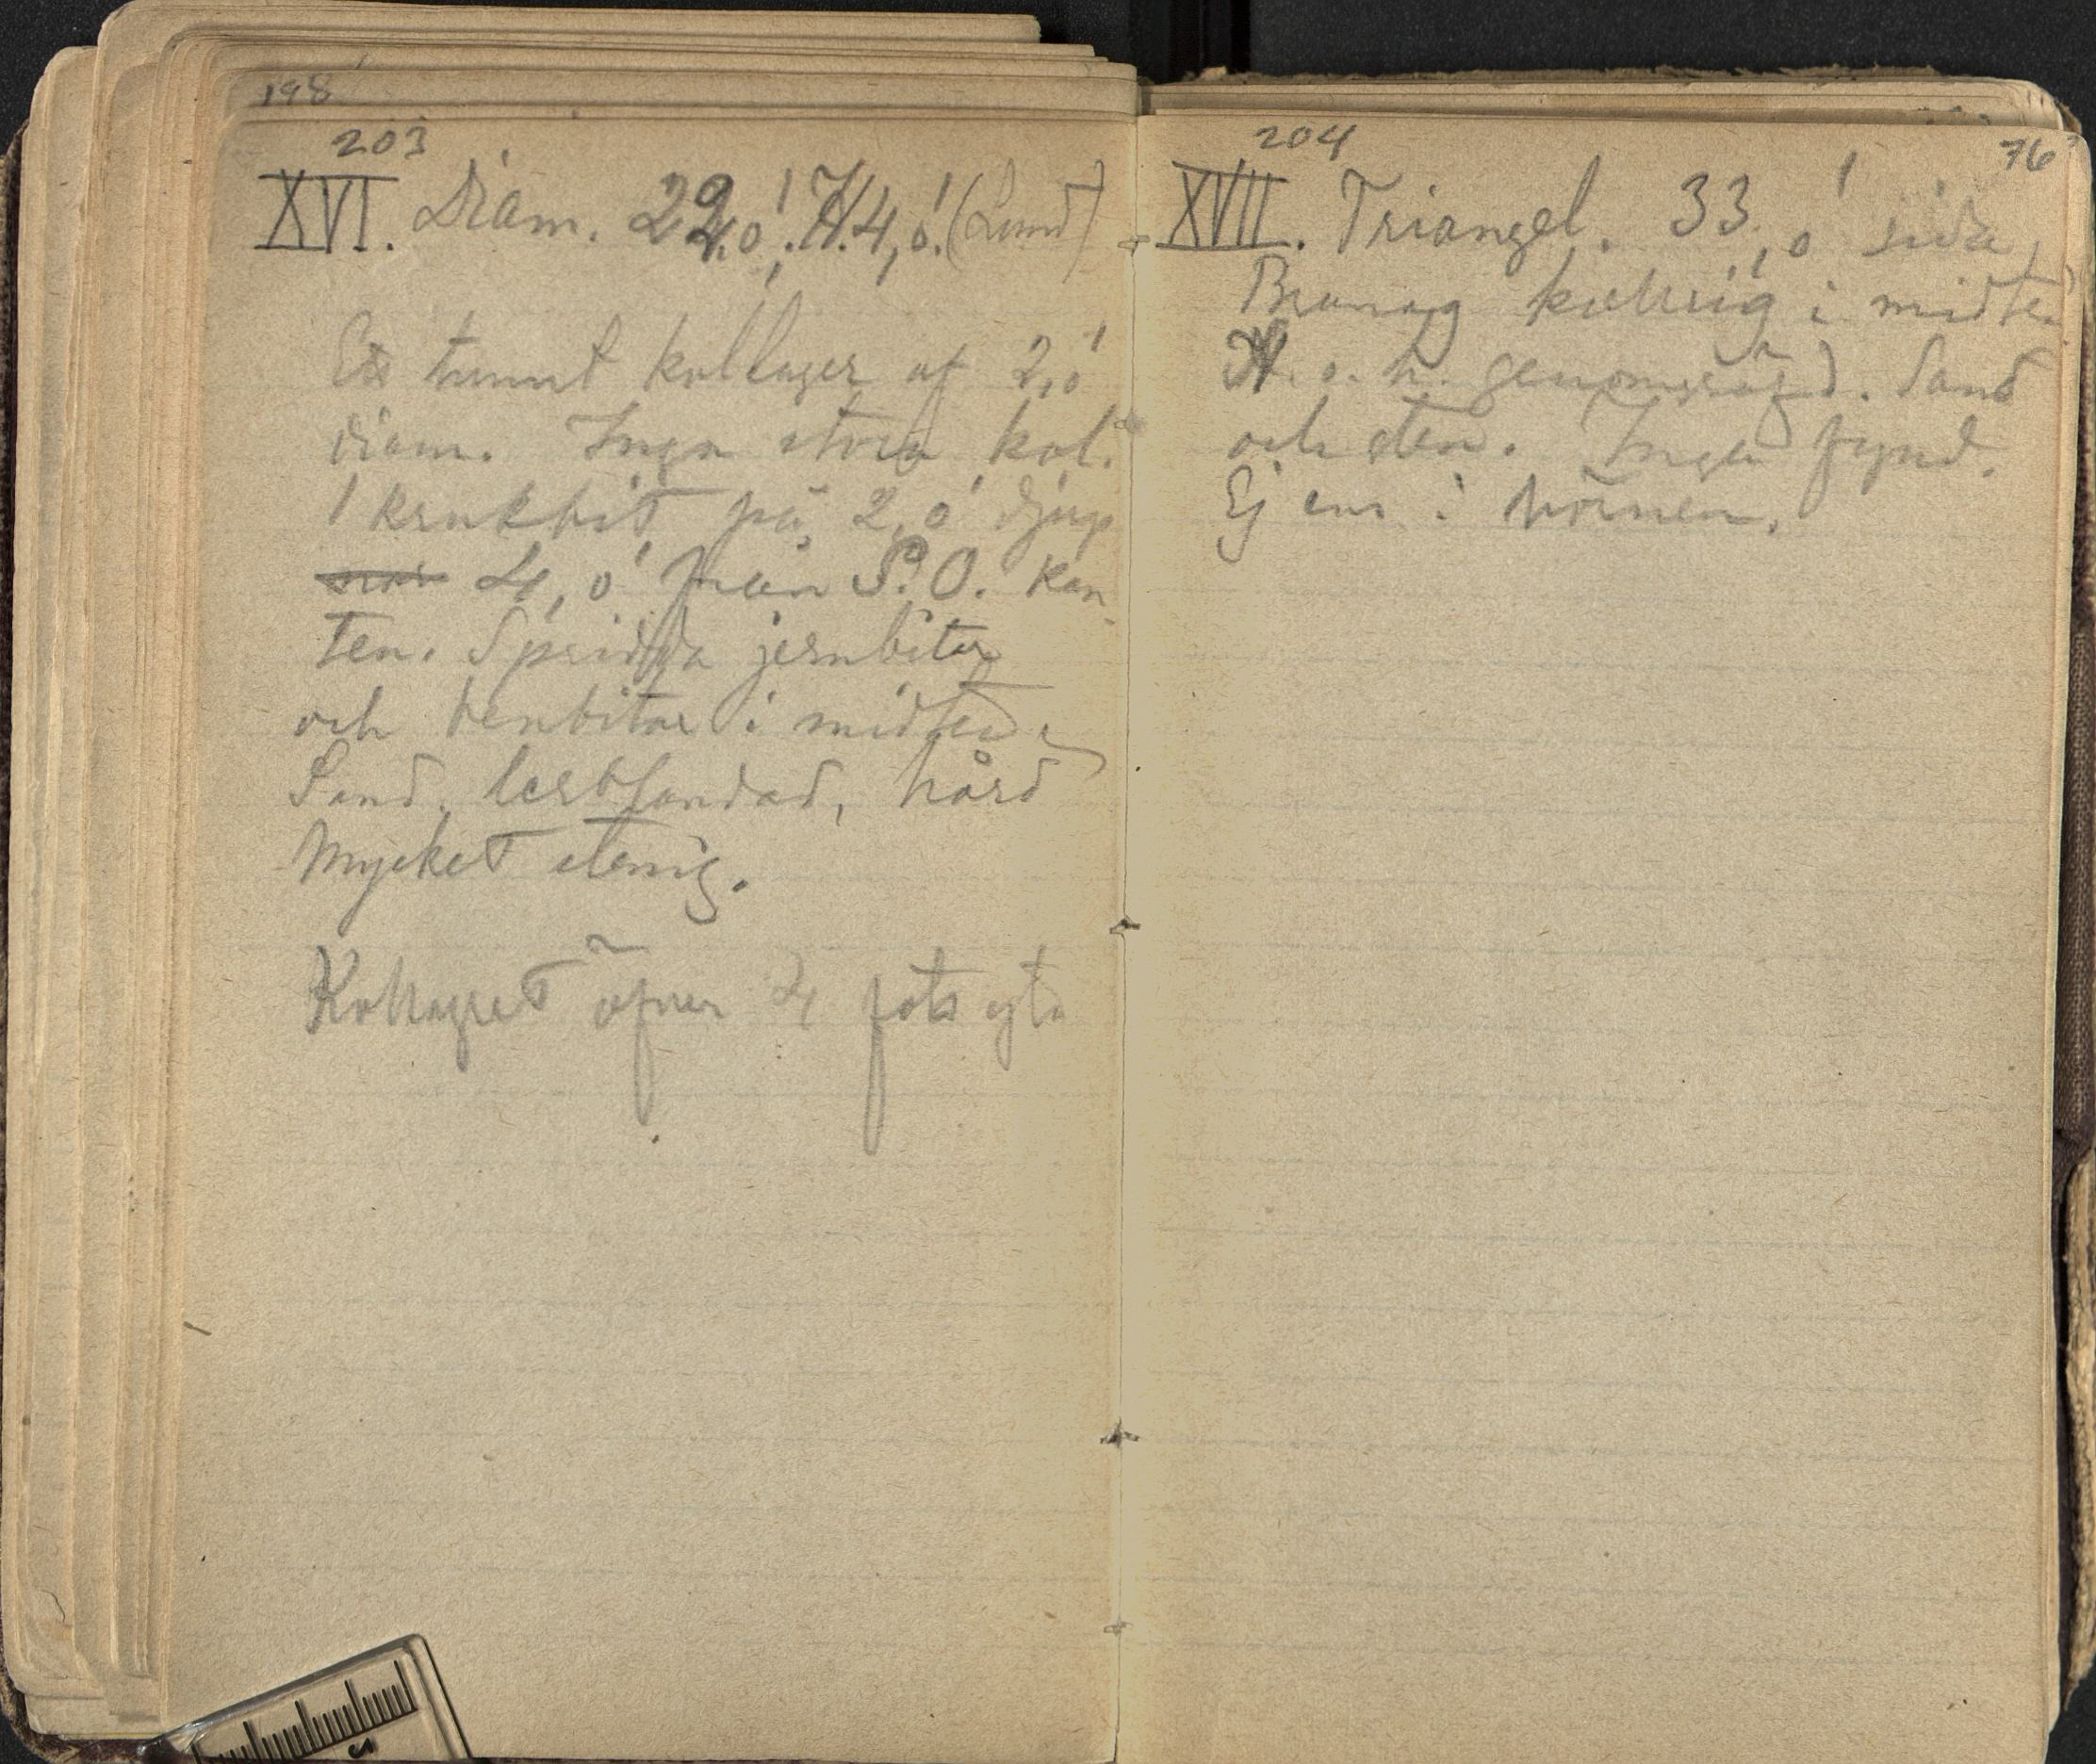 198
203
XVI. Diam. 22,0'. H. 4,0'. (Lund)
Ett tunnt kollager af 2,0'
diam. Inga stora kol.
1 krukbit på 2,0' djup
4,0' från S.O. kan
ten. Spridda jernbitar
och benbitar i midten
Sand, lerblandad, hård
Mycket stenig.
Kollagret öfver 4 fots yta
204
76
XVII. Triangel. 33,0' sida
i midten
H. o. h. genomgräfd. Sand
och sten. Inga fynd.
Ej ens i hörnen.